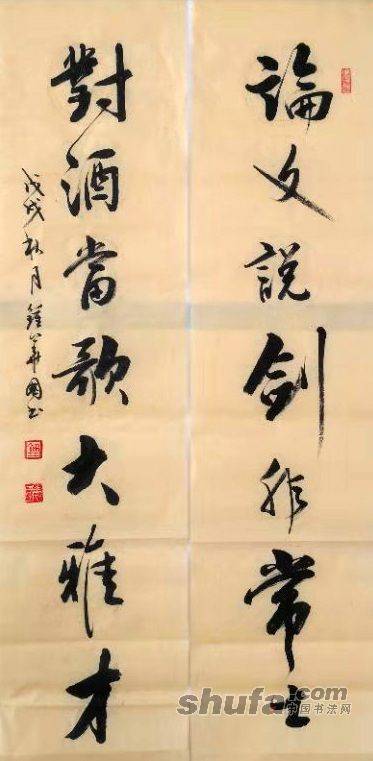 論文説劍非常士
對酒當歌大雅才
戊戌秋月鍾華国书
shufa.com
中国书法网